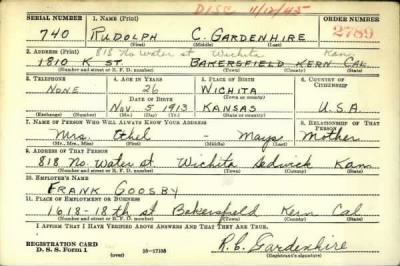 DISC. 11/12/45
SERIAL NUMBER 1. NAME (Print) ORDER NUMBER
740 RUDOLPH C. GARDENHIRE 2789
(First) (Middle) (Last)
2. ADDRESS (Print) 818 No. Water st Wichita Kans
1810 K ST. BAKERSFIELD KERN CAL.
(Number and street or R. F. D. number) (Town) (County) (State)
3. TELEPHONE 4. AGE IN YEARS 5. PLACE OF BIRTH 6. COUNTRY OF CITIZENSHIP
NONE 26 WICHITA
DATE OF BIRTH (Town or county)
NOV 5 1913 KANSAS U.S.A.
(Exchange) (Number) (Mo.) (Day) (Yr.) (State or country)
7. NAME OF PERSON WHO WILL ALWAYS KNOW YOUR ADDRESS 8. RELATIONSHIP OF THAT PERSON
Mrs. Ethel - Mays Mother
(Mr., Mrs., Miss) (First) (Middle) (Last)
9. ADDRESS OF THAT PERSON
818 No. Water st. Wichita Sedwick Kann
(Number and street or R. F. D. number) (Town) (County) (State)
10. EMPLOYER'S NAME
FRANK GOOSBY
11. PLACE OF EMPLOYMENT OR BUSINESS
1618-18th st Bakersfield Kern Cal
(Number and street or R. F. D. number) (Town) (County) (State)
I AFFIRM THAT I HAVE VERIFIED ABOVE ANSWERS AND THAT THEY ARE TRUE.
REGISTRATION CARD
D. S. S. Form 1 (over) 16-17105 R.C. Gardenhire
(Registrant's signature)